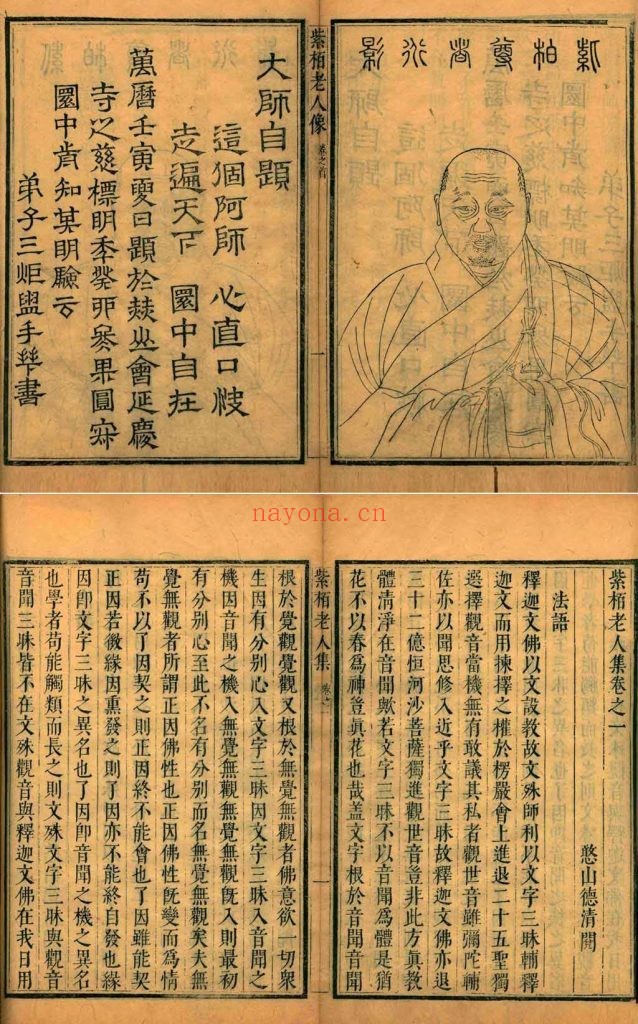 紫柏尊者小影
紫栢老人像 卷之首 一
大師自題
這個阿師 心直口快
走遍天下 圜中自在
萬曆壬寅夏日題於燕山會延慶
寺之慈標明年癸卯冬果圓寂
圜中肯知其明驗云
弟子三炬盥手書
nayona.cn
紫栢老人集卷之一
憨山德清閱
法語
釋迦文佛以文設教故文殊師利以文字三昧輔釋
迦文而用揀擇之權於楞嚴會上進退二十五聖獨
選擇觀音當機無有敢議其私者觀世音雖彌陀輔
佐亦以聞思修入近乎文字三昧故釋迦文佛亦退
三十二億恒河沙菩薩獨進觀世音豈非此方真教
體清淨在音聞歟若文字三昧不以音聞爲體是猶
花不以春爲神豈真花也哉蓋文字根於音聞音聞
紫栢老人集 卷之一 一
根於覺觀覺觀又根於無覺無觀者佛意欲一切衆
生因有分別心入文字三昧因文字三昧入音聞之
機因音聞之機入無覺無觀無覺無觀既入則最初
有分別心至此不名有分別而名無覺無觀矣夫無
覺無觀者所謂正因佛性也正因佛性既變而爲情
苟不以了因契之則正因終不能會也了因雖能契
正因若微緣因熏發之則了因亦不能終自發也緣
因即文字三昧之異名也了因即音聞之機之異名
也學者苟能觸類而長之則文殊文字三昧與觀音
音聞三昧皆不在文殊觀音與釋迦文佛在我日用